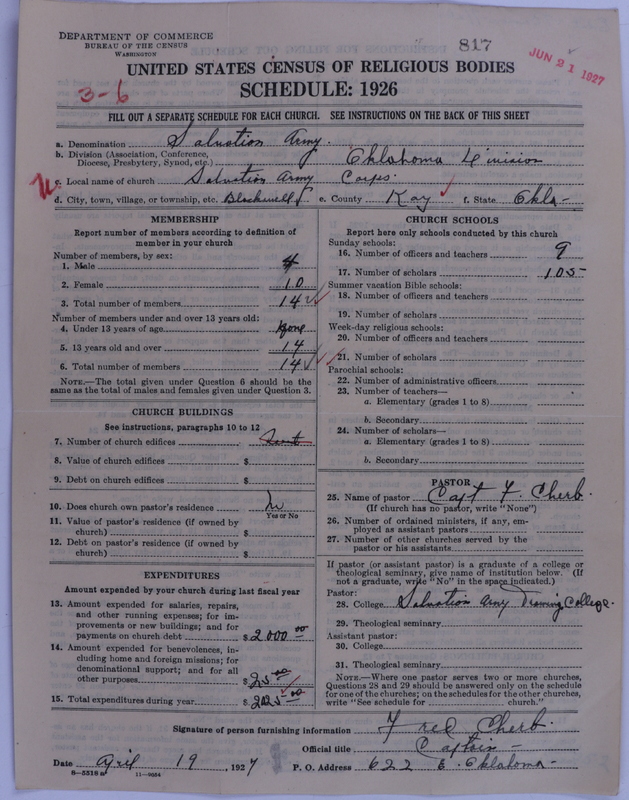 DEPARTMENT OF COMMERCE
BUREAU OF THE CENSUS
WASHINGTON
817
JUN 21 1927
UNITED STATES CENSUS OF RELIGIOUS BODIES
SCHEDULE: 1926
3-6
FILL OUT A SEPARATE SCHEDULE FOR EACH CHURCH. SEE INSTRUCTIONS ON THE BACK OF THIS SHEET
a. Denomination Salvation Army.
b. Division (Association, Conference,
Diocese, Presbytery, Synod, etc.) Oklahoma Division
c. Local name of church Salvation Army Corps.
d. City, town, village, or township, etc. Blackwell e. County Kay f. State Okla-
MEMBERSHIP
Report number of members according to definition of
member in your church
Number of members, by sex:
1. Male 4
2. Female 10
3. Total number of members 14
Number of members under and over 13 years old:
4. Under 13 years of age None
5. 13 years old and over 14
6. Total number of members 14
NOTE.—The total given under Question 6 should be the
same as the total of males and females given under Question 3.
CHURCH BUILDINGS
See instructions, paragraphs 10 to 12
7. Number of church edifices Rent
8. Value of church edifices $
9. Debt on church edifices $
10. Does church own pastor's residence No
Yes or No
11. Value of pastor's residence (if owned by
church) $
12. Debt on pastor's residence (if owned by
church) $
EXPENDITURES
Amount expended by your church during last fiscal year
13. Amount expended for salaries, repairs,
and other running expenses; for im-
provements or new buildings; and for
payments on church debt $2000 00
14. Amount expended for benevolences, in-
cluding home and foreign missions; for
denominational support; and for all
other purposes $25 00
15. Total expenditures during year $2025 00
CHURCH SCHOOLS
Report here only schools conducted by this church
Sunday schools:
16. Number of officers and teachers 9
17. Number of scholars 105
Summer vacation Bible schools:
18. Number of officers and teachers
19. Number of scholars
Week-day religious schools:
20. Number of officers and teachers
21. Number of scholars
Parochial schools:
22. Number of administrative officers
23. Number of teachers—
a. Elementary (grades 1 to 8)
b. Secondary
24. Number of scholars—
a. Elementary (grades 1 to 8)
b. Secondary
PASTOR
25. Name of pastor Capt F. Cherb.
(If church has no pastor, write "None")
26. Number of ordained ministers, if any, em-
ployed as assistant pastors
27. Number of other churches served by the
pastor or his assistants
If pastor (or assistant pastor) is a graduate of a college or
theological seminary, give name of institution below. (If
not a graduate, write "No" in the space indicated.)
Pastor:
28. College Salvation Army Training College.
29. Theological seminary
Assistant pastor:
30. College
31. Theological seminary
NOTE.—Where one pastor serves two or more churches,
Questions 28 and 29 should be answered only on the schedule
for one of the churches; on the schedules for the other churches,
write "See schedule for church."
Signature of person furnishing information Fred Cherb.
Official title Captain -
Date April 19, 1927 P. O. Address 622 E. Oklahoma -
8-5518 11-9034